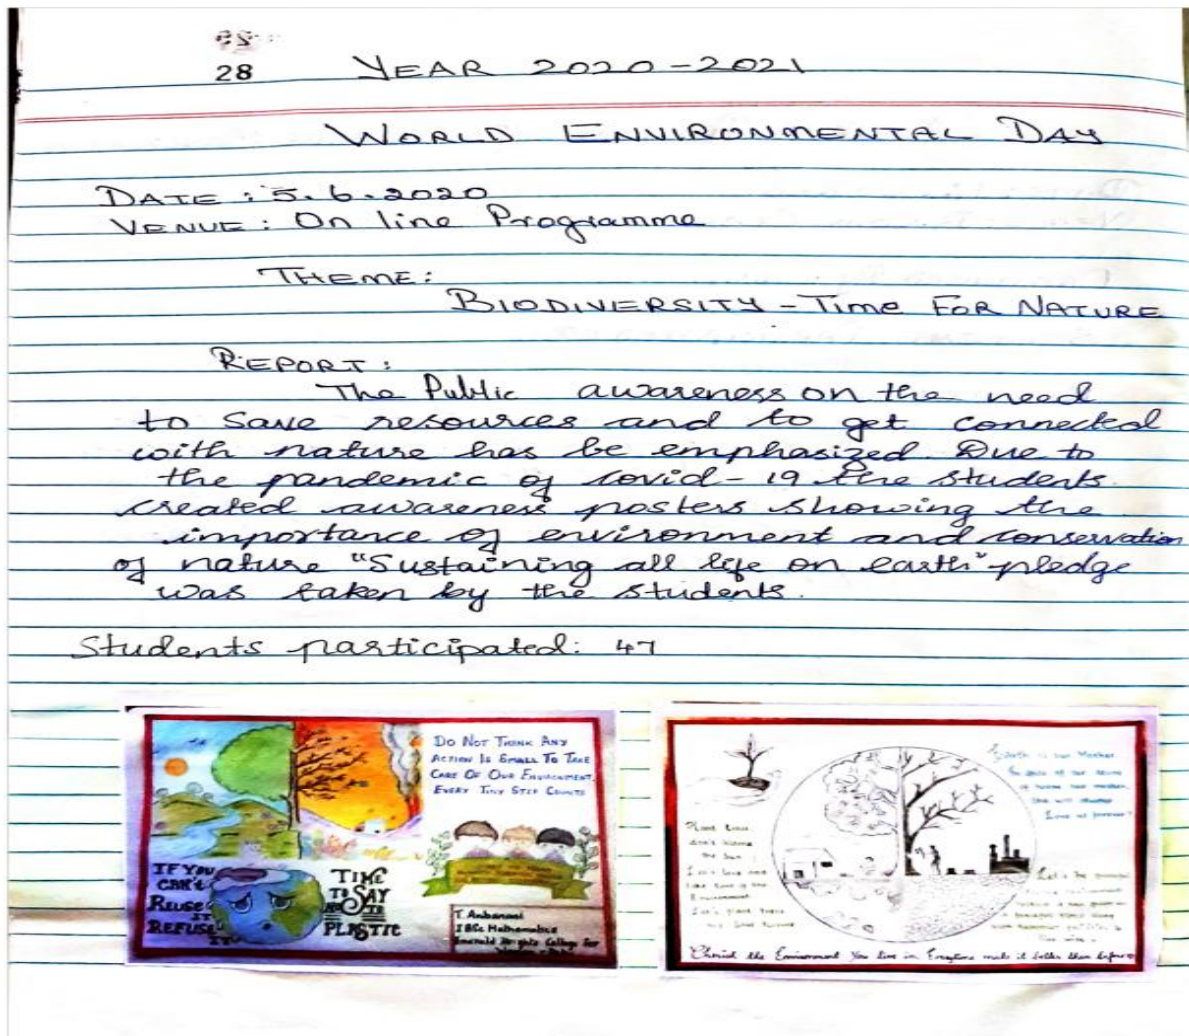 28
YEAR 2020-2021
WORLD ENVIRONMENTAL DAY
DATE : 5.6.2020
VENUE : On line Programme
THEME :
BIODIVERSITY - Time FOR NATURE
REPORT :
The Public awareness on the need
to save resources and to get connected
with nature has be emphasized. Due to
the pandemic of covid-19 the students
created awareness posters showing the
importance of environment and conservation
of nature "Sustaining all life on earth" pledge
was taken by the students.
Students participated: 47
DO NOT THINK ANY
ACTION IS SMALL TO TAKE
CARE OF OUR ENVIRONMENT,
EVERY TINY STEP COUNTS
IF YOU
CAN'T
REUSE
IT
REFUSE
IT
TIME
TO SAY
NO TO
PLASTIC
T. Anbarasi
I BSc Mathematics
Emerald Heights College for
Earth is our Mother
Love us forever
Plant trees
don't blame
the sun
Let's love and
take care of the
Environment
Let's plant trees
Cherish the Environment You live in Everytime make it better than before